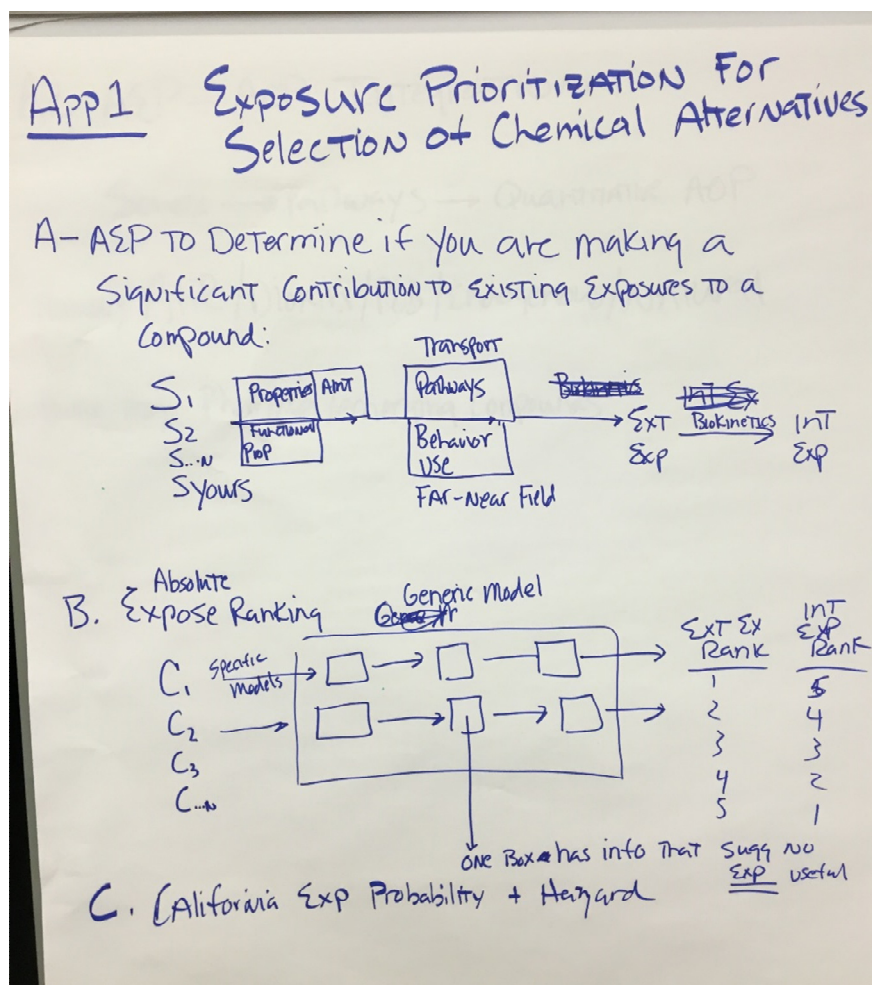 App 1 Exposure Prioritization For
Selection of Chemical Alternatives
A- AEP To Determine if you are making a
Significant Contribution to Existing Exposures to a
Compound:
S1
S2
S...N
Syours
Properties
Amt
Functional
Prop
Transport
Pathways
Behavior
Use
Far-Near Field
Ext
Exp
Biokinetics
Int
Exp
Absolute
B. Expose Ranking
Generic Model
C1
Specific
Models
C2
C3
C...N
Ext Ex
Rank
1
2
3
4
5
Int
Exp
Rank
5
4
3
2
1
One Box has info that Sugg No
Exp useful
C. California Exp Probability + Hazard